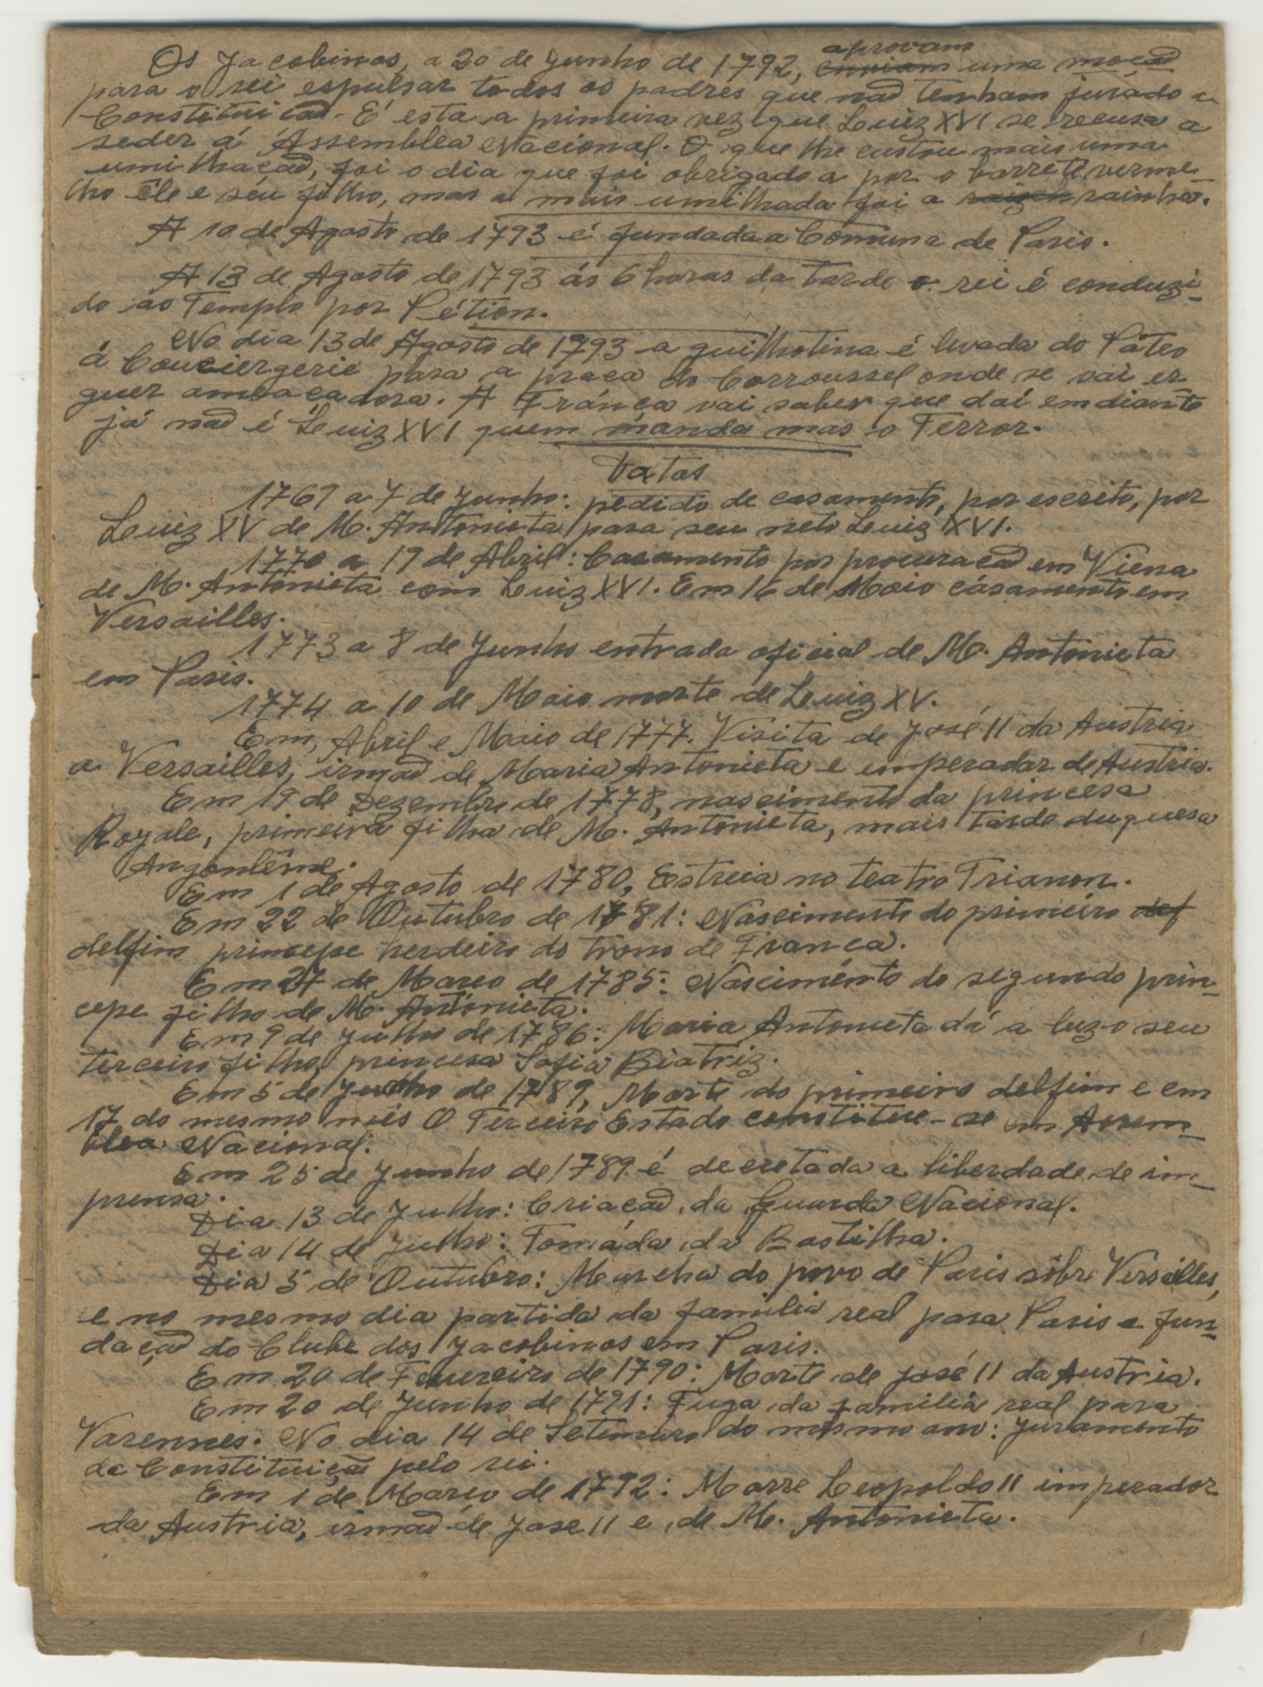 Os Jacobinos, a 20 de Junho de 1792, aprovam enviam uma moçaõ
para o rei espulsar todos os padres que naõ tenham jurado a
Constituiçaõ. É esta a primeira vez que Luiz XVI se recusa a
seder á Assemblea Nacional. O que lhe custou mais uma
umilhaçaõ, foi o dia que foi obrigado a por o barrete verme-
lho êle e seu filho, mas a mais umilhada foi a rainha.
A 10 de Agosto de 1793 é fundada a Comuna de Paris.
A 13 de Agosto de 1793 ás 6 horas da tarde o rei é conduzi-
do ao Templo por Pétion.
No dia 13 de Agosto de 1793 a guilhotina é levada do Páteo
á Couciergerie para a praça do Carroussel onde se vai er
guer ameaçadora. A França vai saber que daí em diante
já naõ é Luiz XVI quem manda mas o Terror.
Datas
1769 a 7 de Junho: pedido de casamento, por escrito, por
Luiz XV de M. Antonieta para seu neto Luiz XVI.
1770 a 19 de Abril: Casamento por procuraçaõ em Viena
de M. Antonieta com Luiz XVI. Em 16 de Maio cásamento em
Versailles.
1773 a 8 de Junho entrada oficial de M. Antonieta
em Paris.
1774 a 10 de Maio morte de Luiz XV.
Em, Abril e Maio de 1777. Visita de José II da Austria
a Versailles, irmaõ de Maria Antonieta e imperador de Austria.
Em 19 de Dezembro de 1778, nascimento da princesa
Royale, primeira filha de M. Antonieta, mais tarde duquesa
Angoulême.
Em 1 de Agosto de 1780, Estreia no teatro Trianon.
Em 22 de Outubro de 1781: Nascimento do primeiro def
delfim princepe herdeiro do trono de França.
Em 27 de Março de 1785: Nasciménto do segundo prin-
cepe filho de M. Antónieta.
Em 9 de Julho de 1786: Maria Antonieta dá a luz o seu
terceiro filho, princesa Sofia Biatriz.
Em 5 de Junho de 1789, Morte do primeiro delfim e em
17 do mesmo mês O Terceiro Estado constitue-se em Assem-
blea Nacional.
Em 25 de Junho de 1789 é decretada a liberdade de im-
prensa.
Dia 13 de Julho: Criaçaõ da Guarda Nacional.
Dia 14 de Julho: Tomáda da Bastilha.
Dia 5 de Outubro: Marcha do povo de Paris sôbre Versailles,
e no mesmo dia partida da familia real para Paris e fun-
daçaõ do Clube dos Jacobinos em Paris.
Em 20 de Fevereiro de 1790: Morte de José II da Austria.
Em 20 de Junho de 1791: Fuga da familia real para
Varennes. No dia 14 de Setembro do mesmo ano: Juramento
da Constituiçaõ pelo rei.
Em 1 de Março de 1792: Morre Leopoldo II imperador
da Austria, irmaõ de Jose II e de M. Antonieta.